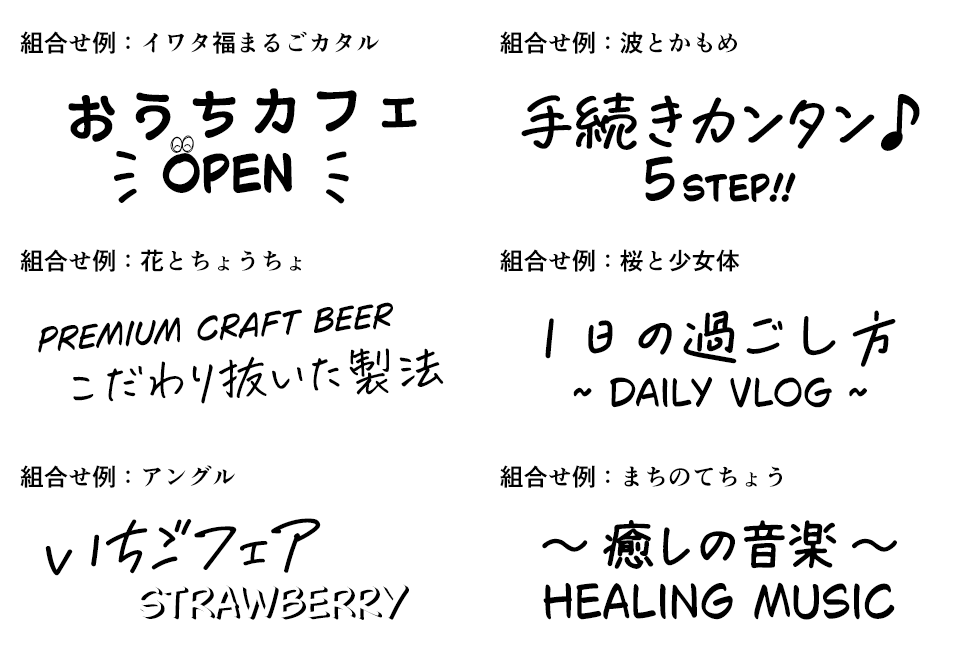 組合せ例：イワタ福まるごカタル
おうちカフェ
OPEN
組合せ例：波とかもめ
手続きカンタン♪
5 STEP!!
組合せ例：花とちょうちょ
PREMIUM CRAFT BEER
こだわり抜いた製法
組合せ例：桜と少女体
1日の過ごし方
~ DAILY VLOG ~
組合せ例：アングル
いちごフェア
STRAWBERRY
組合せ例：まちのてちょう
～癒しの音楽～
HEALING MUSIC